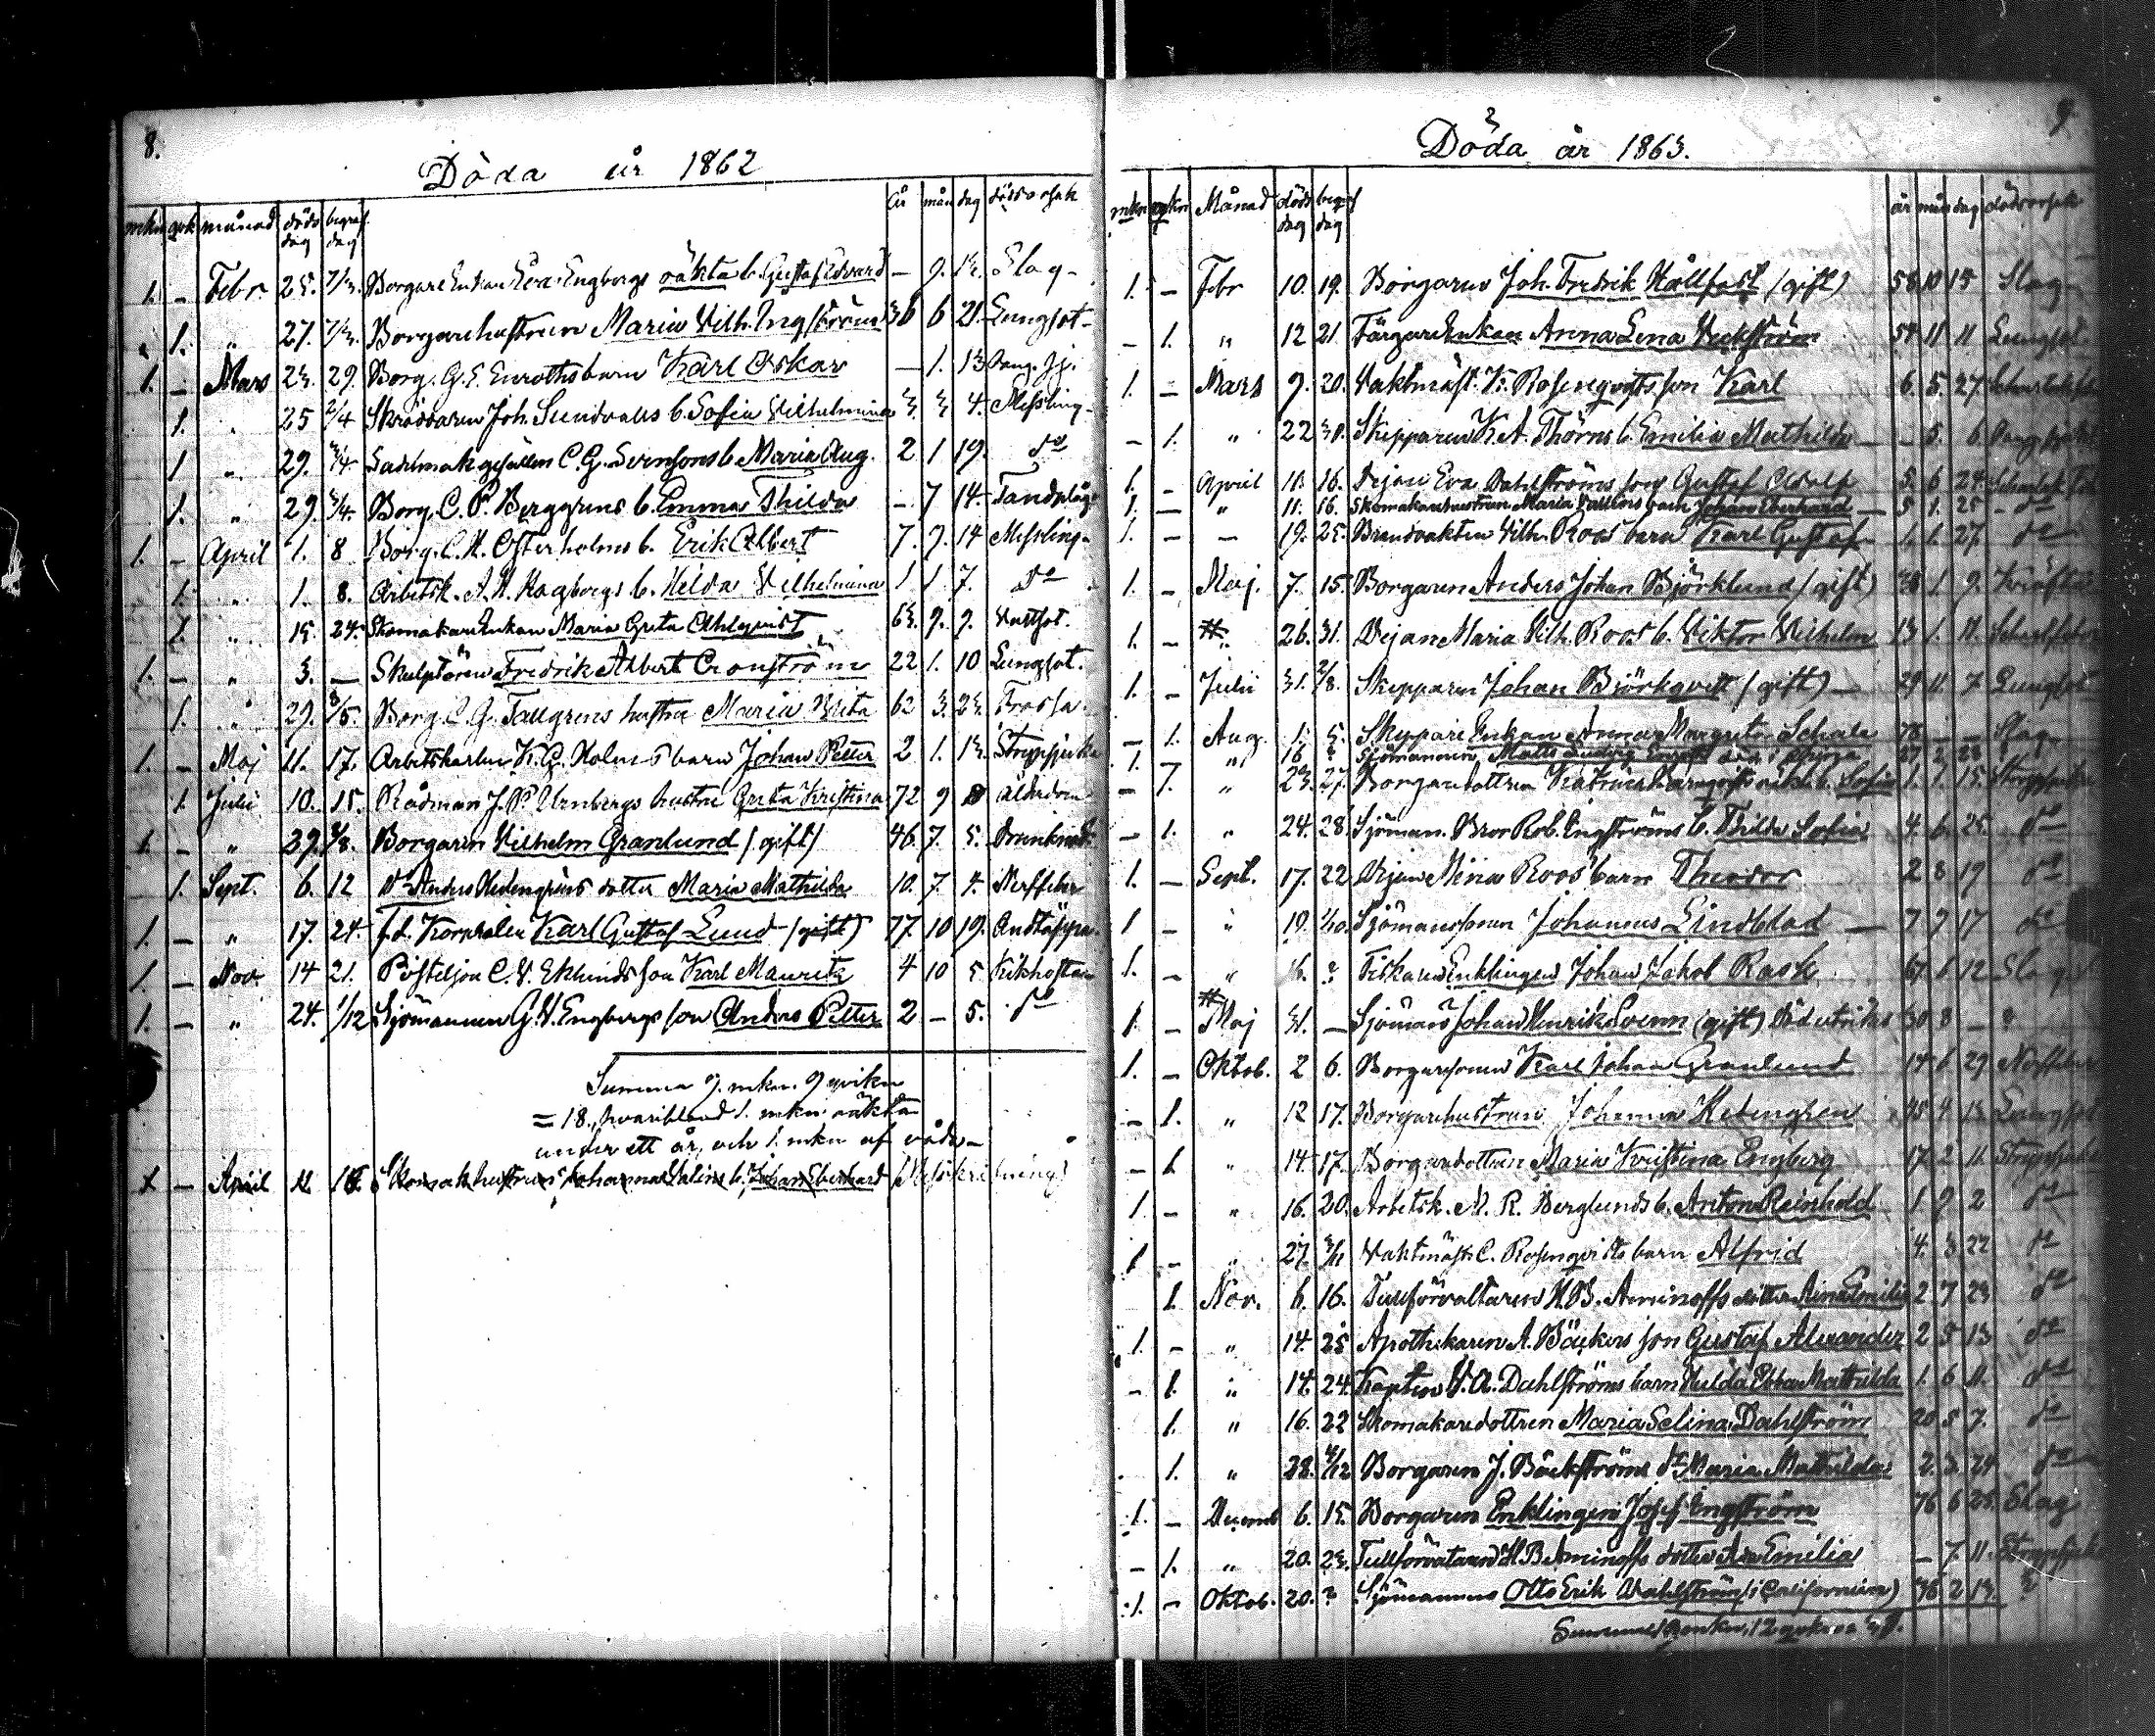 8.
Döda år 1862
mkn qvk månad döds dag begraf dag år mån dag dödsorsak
1. – Febr. 25. 7/3. Borgare Enkan Eva Engbergs oäkta b. Gustaf Edvard – 9. 13. Slag
1. " 27. 7/3. Borgarehustrun Maria Vilh. Engström 36 6 21. Lungsot
1. – Mars 23. 29. Borg. G. E. Enroths barn Karl Oskar – 1. 13
1. " 25 2/4 Skräddaren Joh. Sundvalls b. Sofia Vilhelmina 3. 3 4. Messling
1 " 29. 4/4. Sadelmak.gesällen C. G. Svensons b. Maria Aug. 2 1 19. do
1. " 29. 3/4. Borg. C. P. Berggrens b. Emma Thilda – 7 14. Tandslag
1. – April 1. 8 Borg. C. H. Österholms b. Erik Albert 7. 7. 14 Messling
1. " 1. 8. Arbetsk. A. H. Hagbergs b. Hilda Vilhelmina 1 1 7. do
1. " 15. 24. Skomakare Enkan Maria Greta Ahlqvist 63. 9. 9. Vattsot.
1. – " 3. – Skulptören Fredrik Albert Cronström 22 1. 10 Lungsot.
1. " 29. 8/5. Borg. C. G. Tallgrens hustru Maria Brita 62 3. 23. Frossa
1. – Maj 11. 17. Arbetskarlen K. G. Holms barn Johan Petter 2 1. 13. Strypsjuka
1. Julii 10. 15. Rådman J. P. Urnbergs hustru Greta Kristina 72 9 8 ålderdom
1. – " 29. 3/8. Borgaren Vilhelm Granlund (gift) 46. 7. 5. Drunknad
1. Sept. 6. 12 Do Anders Hedengrens dotter Maria Mathilda 10. 7. 4. Nerffeber
1. – " 17. 24. f.d. Korpralen Karl Gustaf Lund (gift) 77. 10 19. Andtäppa
1. – Nov. 14 21. Postiljon C. V. Eklunds son Karl Mauritz 4 10 5 Kikhosta
1. – " 24. 1/12 Sjömannen G. V. Engbergs son Anders Petter 2 – 5. do
Summa 9. mkn. 9 qvikn
= 18., hvaribland 1. mkn oäkta
under ett år, och 1. mkn af våda –
1 – April 11 16. Skomak.hustrun Johanna Valins b. Johan Eberhard (Misskrifning)
9
Döda år 1863.
mkn qvkn Månad döds dag begraf dag år mån dag dödsorsak
1. – Febr 10. 19. Borgaren Joh. Fredrik Hållfast (gift) 58 10 15 Slag
– 1. " 12 21 Färgare Enkan Anna Lena Veckström 54 11 11 Lungsot
1. – Mars 9. 20. Vaktmäst. K. Rosenqvists son Karl 6. 5. 27
– 1. " 22 30. Skepparen K. A. Thörns b. Emilia Mathilda – 5. 6
1. – April 11. 16. Pigan Eva Dahlströms son Gustaf Adolf 5. 6 24.
1. – " 11. 16. Skomakarhustrun Maria Vallins barn Johan Eberhard – 5 1. 25 – do
1. – – 19. 25. Brandvakten Vilh. Roos' barn Karl Gustaf 1. 1. 27. do
1. – Maj. 7. 15. Borgaren Anders Johan Björklund (gift) 1. 9.
1. – " 26. 31. Pigan Maria Vilh. Roos' b. Viktor Vilhelm 13 1. 11.
1. – Julii 31. 2/8. Skepparen Johan Björkqvist (gift) – 29 11. 7 Lungsot
– 1. Aug. 1. 5. Skeppare Enkan Anna Margreta Schale 78 – – Slag
1. " 16 ? Sjömannen Matts Ludvig 27 2 28
– 1. " 23. 27. Borgaredottren b. Sofia 1. 1. 15. Strypsjuka
– 1. " 24. 28. Sjöman. Bror Rob. Engströms b. Thilda Sofia 4. 6. 25. do
1. – Sept. 17. 22 Pigan Mina Roos' barn Theodor 2 8 19 do
1 – " 19. 1/10. Sjömanssonen Johannes Lindblad – 7 9 17 do
1. – " 16. ? Fiskaren Enklingen Johan Jakob Rask 67. 6 12 Slag
1. – Maj 31. – Sjöman Johan Henrik Svenn (gift) död utrikes 30 8 – ?
1. – Oktob. 2 6. Borgarsonen Karl Johan Granlund 14 6 29 Nerffeber
– 1. " 12 17. Borgarehustrun Johanna Hedengren 45 4 13 Lungsot
– 1 " 14. 17. Borgaredottren Maria Kristina Engberg 17. 2 11. Strypsjuka
1. – " 16. 20. Arbetsk. A. R. Berglunds b. Anton Reinhold 1 9 2 do
1 – " 27. 3/11 Vaktmäst. C. Rosenqvists barn Alfrid 4. 3 22 do
1. Nov. 6. 16. Tullförvaltaren H. B. Aminoffs dotter Aina Emilia 2 7 23 do
1. – " 14. 25 Apothekaren A. Bäckers son Gustaf Alexander 2 5 13 do
– 1. " 14. 24. Kapten V. A. Dahlströms barn Hulda Ebba Mathilda 1. 6 11. do
1. " 16. 22 Skomakaredottren Maria Selina Dahlström 20. 5 7. do
1. " 28. 4/12 Borgaren J. Bäckströms dr Maria Mathilda 2. 3. 24 do
1. – Decemb 6. 15. Borgaren Enklingen Josef Engström 76 6 25. Slag
– 1. " 20. 23. Tullförvaltaren H. B. Aminoffs dotter Emilia – 7. 11. Strypsjuka
1. – Oktob. 20. ? Sjömannen Otto Erik Vahlström (i Californien) 2 13. ?
Summa mkn, 12 qvkn =